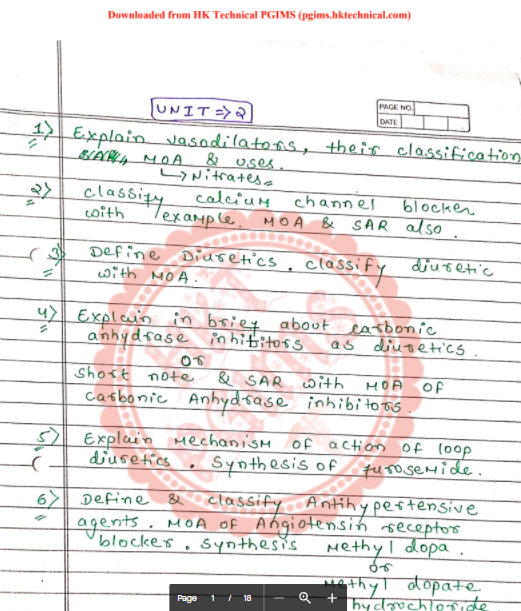 Downloaded from HK Technical PGIMS (pgims.hktechnical.com)
UNIT => 2
PAGE NO.
DATE
1) Explain vasodilators, their classification
MOA & uses.
↳ Nitrates
2) classify calcium channel blocker
with example. MOA & SAR also.
3) Define Diuretics. classify diuretic
with MOA.
4) Explain in brief about carbonic
anhydrase inhibitors as diuretics.
or
short note & SAR with MOA OF
Carbonic Anhydrase inhibitors.
5) Explain Mechanism of action of loop
diuretics. Synthesis of furosemide.
6) Define & classify Antihypertensive
agents. MOA of Angiotensin receptor
blocker. Synthesis Methyl dopa.
or
Methyl dopate
hydrochloride
Page 1 / 18 — +